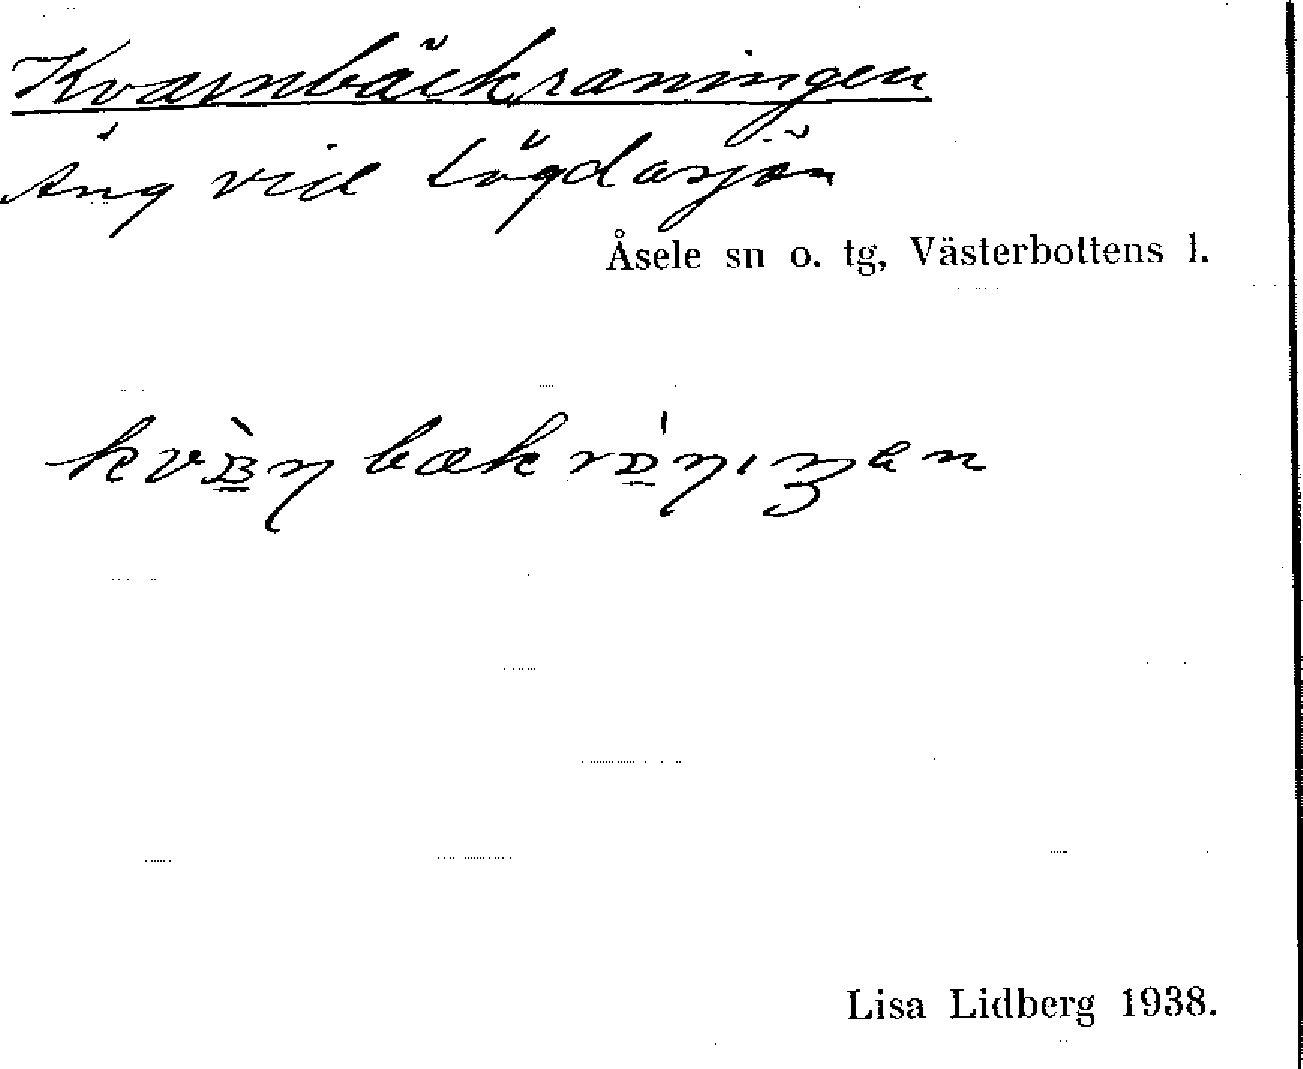 Kvarnbäckraningen
Äng vid Lögdasjön
Åsele sn o. tg, Västerbottens l.
Lisa Lidberg 1938.